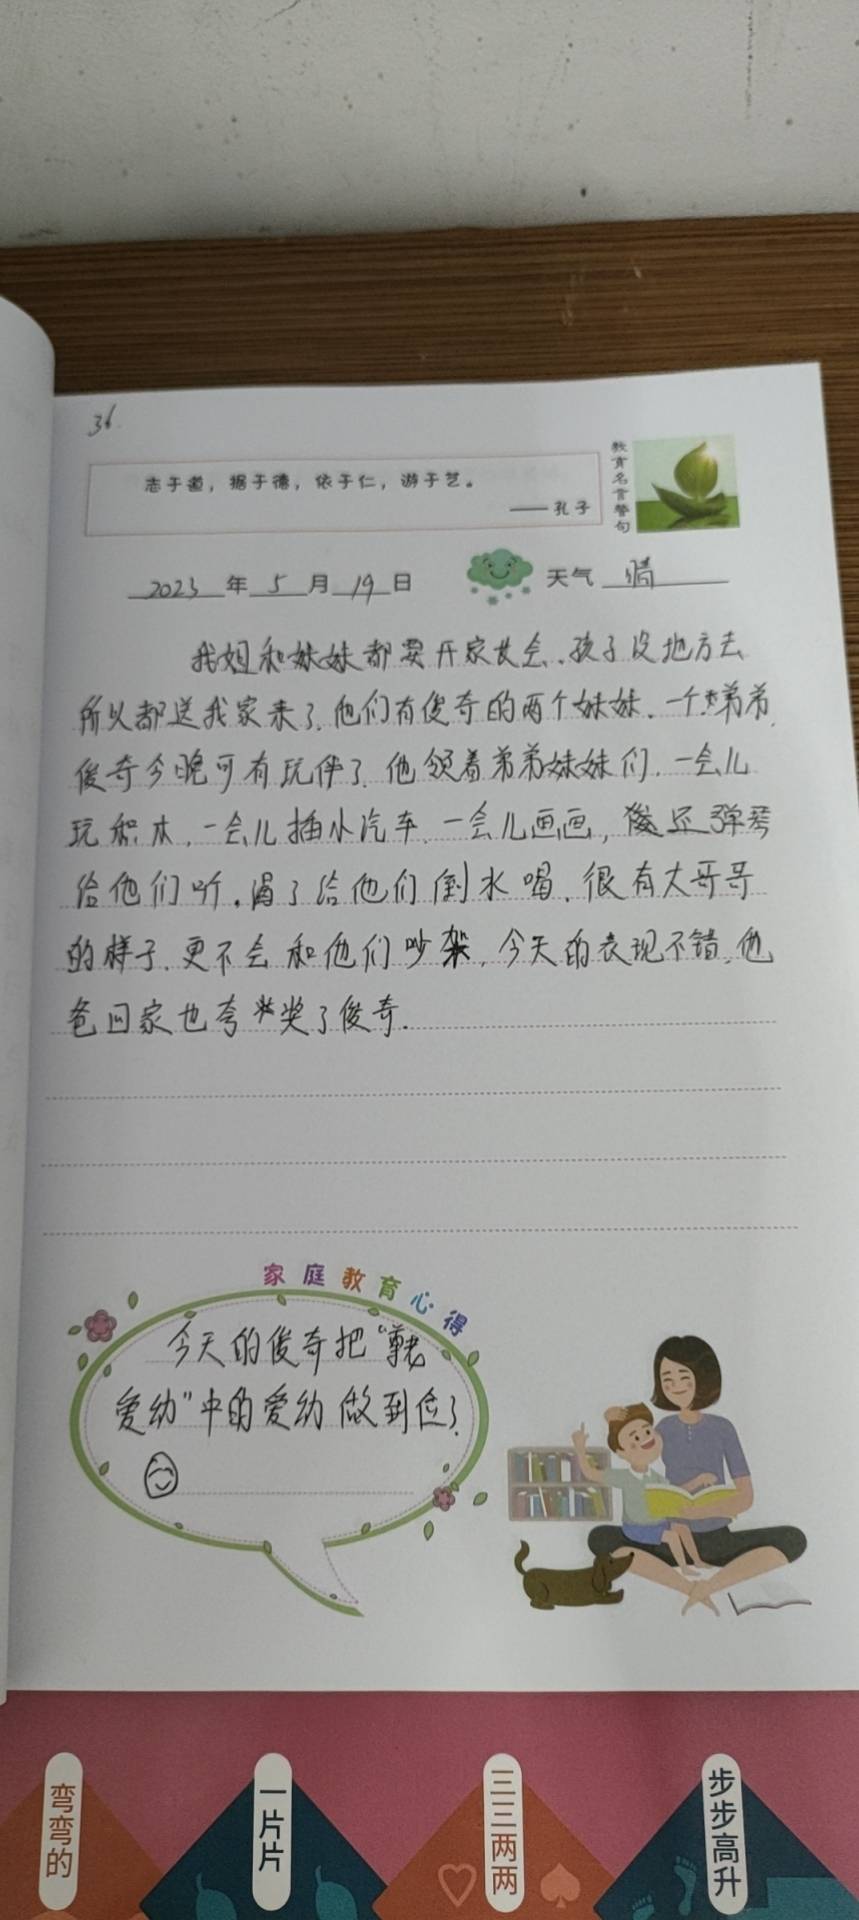 36.
志于道，据于德，依于仁，游于艺。
——孔子
教育名言警句
2023年5月19日 天气 晴
我姐和妹妹都要开家长会.孩子没地方去
所以都送我家来了.他们有俊奇的两个妹妹.一个弟弟.
俊奇今晚可有玩伴了.他领着弟弟妹妹们.一会儿
玩积木.一会儿插小汽车.一会儿画画，还弹琴
给他们听.渴了给他们倒水喝.很有大哥哥
的样子.更不会和他们吵架.今天的表现不错.他
爸回家也夸奖了俊奇.
家庭教育心得
今天的俊奇把“尊老
爱幼”中的爱幼做到位了.
弯弯的
一片片
三三两两
步步高升